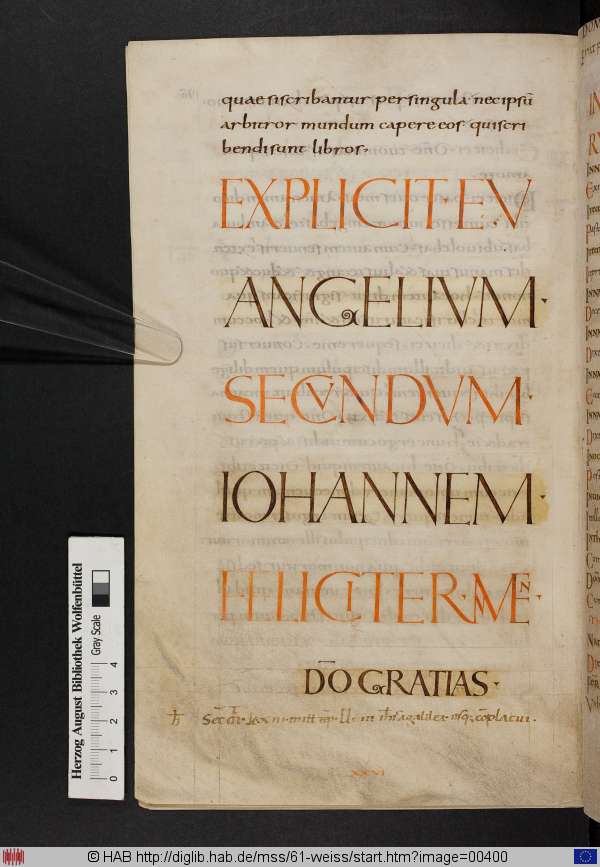 quae si scribantur per singula nec ipsū
arbitror mundum capere eos qui scri
bendi sunt libros.
EXPLICIT·EV
ANGELIVM·
SECVNDVM·
IOHANNEM·
FELICITER·AMEN·
DŌO GRATIAS·
XXVI
Herzog August Bibliothek Wolfenbüttel
Gray Scale
0 1 2 3 4
© HAB http://diglib.hab.de/mss/61-weiss/start.htm?image=00400